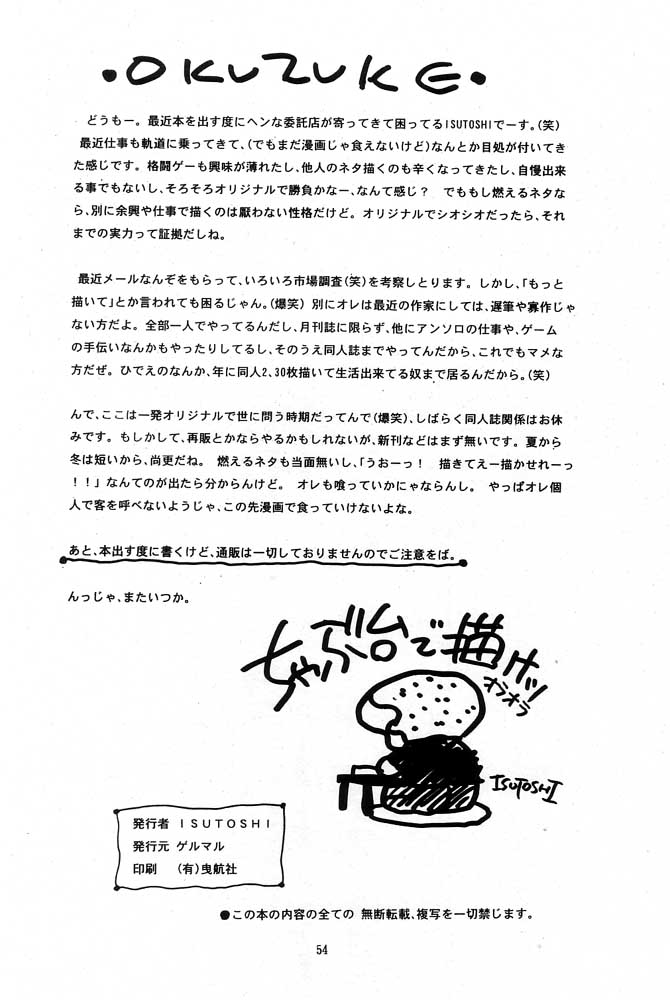 •OKUZUKE•
どうもー。最近本を出す度にヘンな委託店が寄ってきて困ってるISUTOSHIでーす。(笑)
最近仕事も軌道に乗ってきて、(でもまだ漫画じゃ食えないけど)なんとか目処が付いてき
た感じです。格闘ゲーも興味が薄れたし、他人のネタ描くのも辛くなってきたし、自慢出来
る事でもないし、そろそろオリジナルで勝負かなー、なんて感じ？ でももし燃えるネタな
ら、別に余興や仕事で描くのは厭わない性格だけど。オリジナルでシオシオだったら、それ
までの実力って証拠だしね。
最近メールなんぞをもらって、いろいろ市場調査(笑)を考察しとります。しかし、「もっと
描いて」とか言われても困るじゃん。(爆笑) 別にオレは最近の作家にしては、遅筆や寡作じゃ
ない方だよ。全部一人でやってるんだし、月刊誌に限らず、他にアンソロの仕事や、ゲーム
の手伝いなんかもやったりしてるし、そのうえ同人誌までやってんだから、これでもマメな
方だぜ。ひでえのなんか、年に同人2、30枚描いて生活出来てる奴まで居るんだから。(笑)
んで、ここは一発オリジナルで世に問う時期だってんで(爆笑)、しばらく同人誌関係はお休
みです。もしかして、再販とかならやるかもしれないが、新刊などはまず無いです。夏から
冬は短いから、尚更だね。 燃えるネタも当面無いし、「うおーっ！ 描きてえー描かせれーっ
！！」なんてのが出たら分からんけど。 オレも喰っていかにゃならんし。 やっぱオレ個
人で客を呼べないようじゃ、この先漫画で食っていけないよな。
あと、本出す度に書くけど、通販は一切しておりませんのでご注意をば。
んっじゃ、またいつか。
ちゃぶ台で描けッ!
オラオラ
ISUTOSHI
発行者 ISUTOSHI
発行元 ゲルマル
印刷 (有)曳航社
●この本の内容の全ての 無断転載、複写を一切禁じます。
54